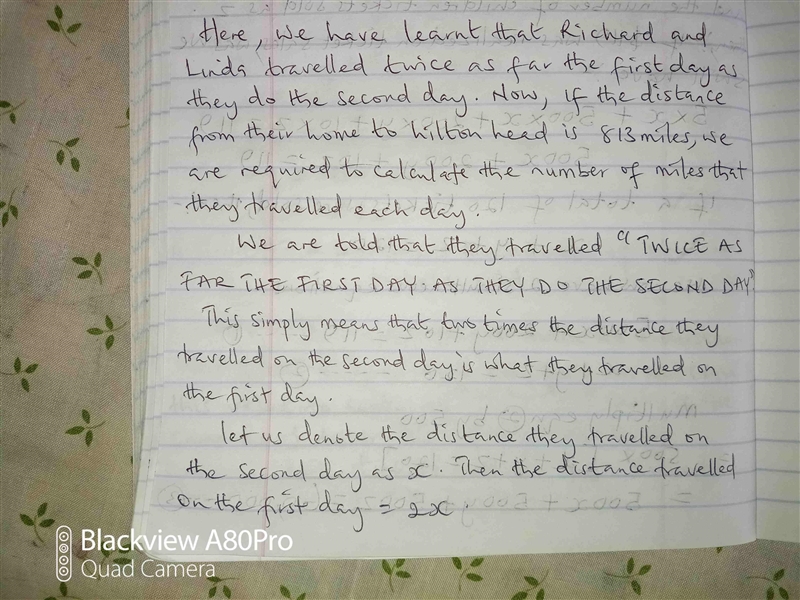 Here, we have learnt that Richard and
Linda travelled twice as far the first day as
they do the second day. Now, if the distance
from their home to hilton head is 813 miles, we
are required to calculate the number of miles that
they travelled each day.
We are told that they travelled "TWICE AS
FAR THE FIRST DAY AS THEY DO THE SECOND DAY"
This simply means that two times the distance they
travelled on the second day is what they travelled on
the first day.
let us denote the distance they travelled on
the second day as x. Then the distance travelled
on the first day = 2x.
Blackview A80Pro
Quad Camera